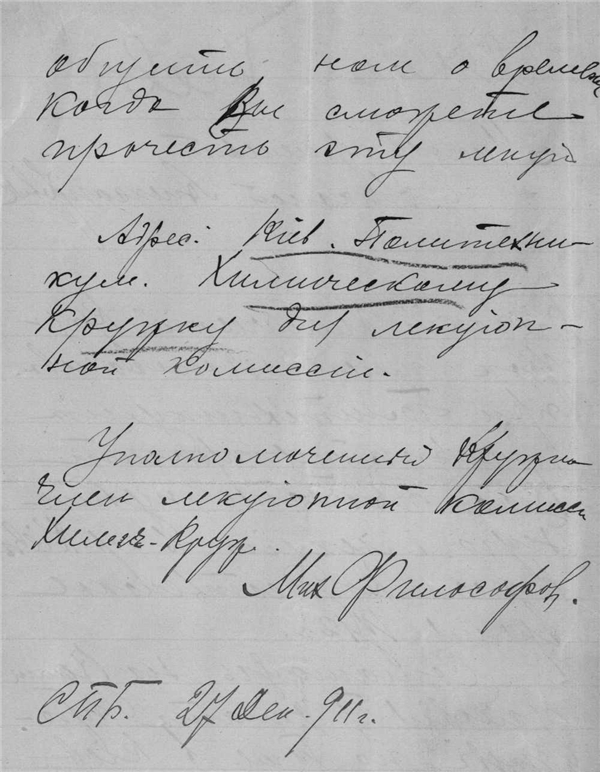 нам о времени
когда Вы сможете
прочесть эту лекц
Адрес: Кіев. Политехни-
кум. Химическому
кружку для лекціон-
ной комиссіи.
Уполномоченный кружка
член лекціонной комисси
Химич-Круж.
Мих Философов.
СПБ. 27 Дек. 911 г.